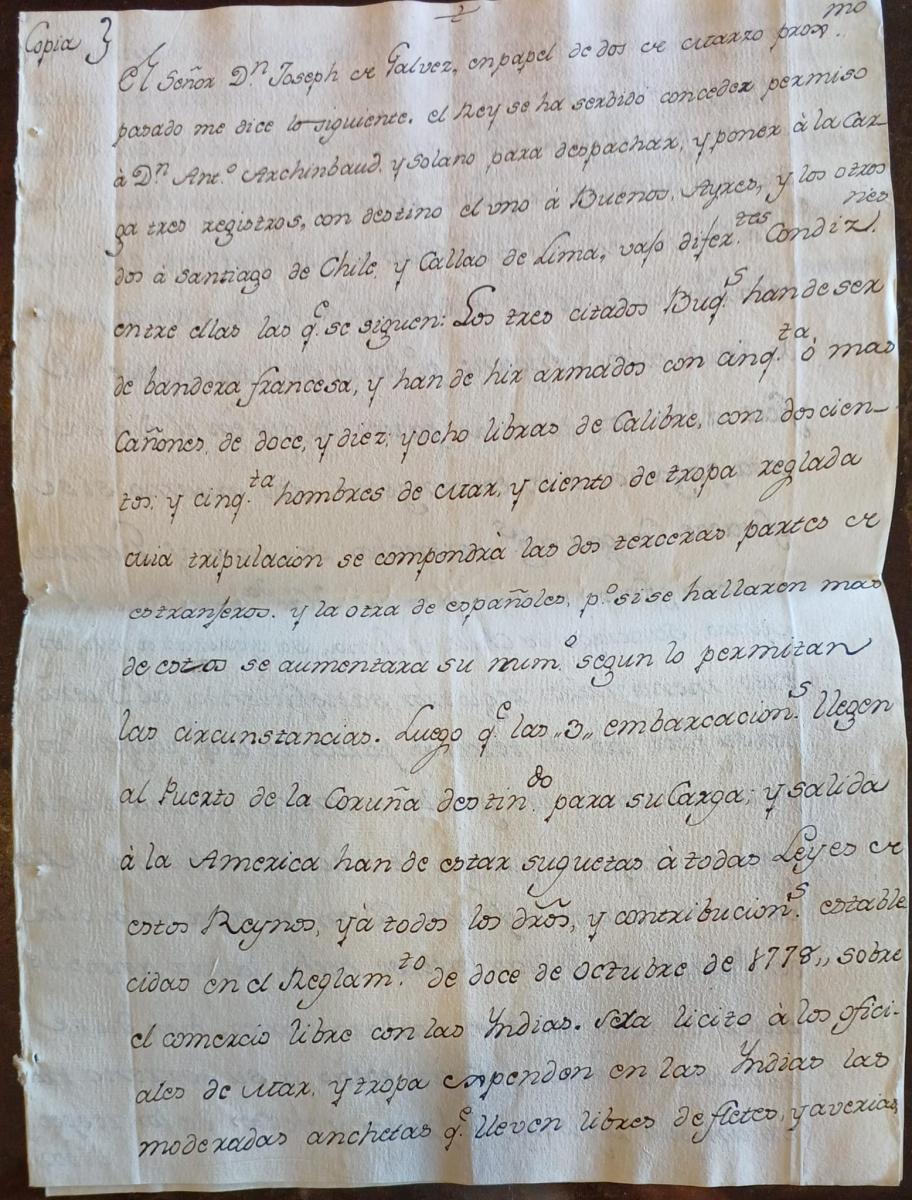 Copia }
El Señor D.n Joseph de Galvez, en papel de dos de Marzo prox.mo
pasado me dice lo siguiente. el Rey se ha serbido conceder permiso
à D.n Ant.o Archinbaud, y Solano para despachar, y poner à la Car-
ga tres registros, con destino el uno à Buenos, Ayres, y los otros
dos à Santiago de Chile, y Callao de Lima, vajo difer.tes Condiz.nes
entre ellas las q.e se siguen: Los tres citados Buq.s han de ser
de bandera francesa, y han de hir armados con cinq.ta ò mas
Cañones, de doce, y diez, y ocho libras de Calibre, con doscien-
tos, y cinq.ta hombres de Mar, y ciento de tropa reglada
cuia tripulacion se compondrà las dos terceras partes de
estranjeros, y la otra de españoles, p.o si se hallaren mas
de estos se aumentara su num.o segun lo permitan
las circunstancias. Luego q.e las "3" embarcacion.s llegen
al Puerto de la Coruña destin.do para su Carga, y salida
à la America han de estar sugetas à todas Leyes de
estos Reynos, y à todos los dr̃os, y contribucion.s estable
cidas en el Reglam.to de doce de Octubre de 1778,, sobre
el comercio libre con las Yndias. Sera licito à los ofici-
ales de Mar, y tropa espenden en las Yndias las
moderadas anchetas q.e lleven libres de fletes, y averias,